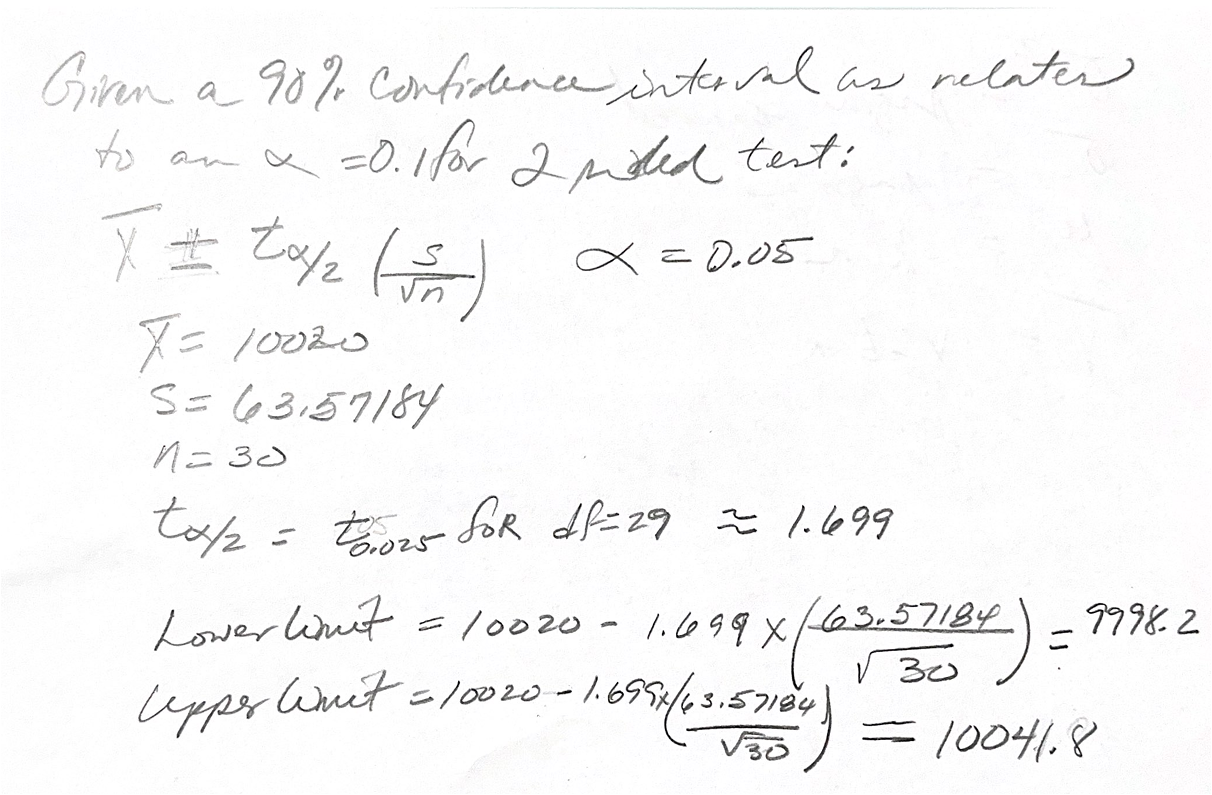 Given a 90% Confidence interval as relates
to an α = 0.1 for 2 sided test:
X̄ ± tα/2 (s/√n) α = 0.05
X̄ = 10020
S = 63.57184
n = 30
tα/2 = t0.025 for df=29 ≈ 1.699
Lower limit = 10020 - 1.699 × (63.57184/√30) = 9998.2
Upper limit = 10020 - 1.699 × (63.57184/√30) = 10041.8